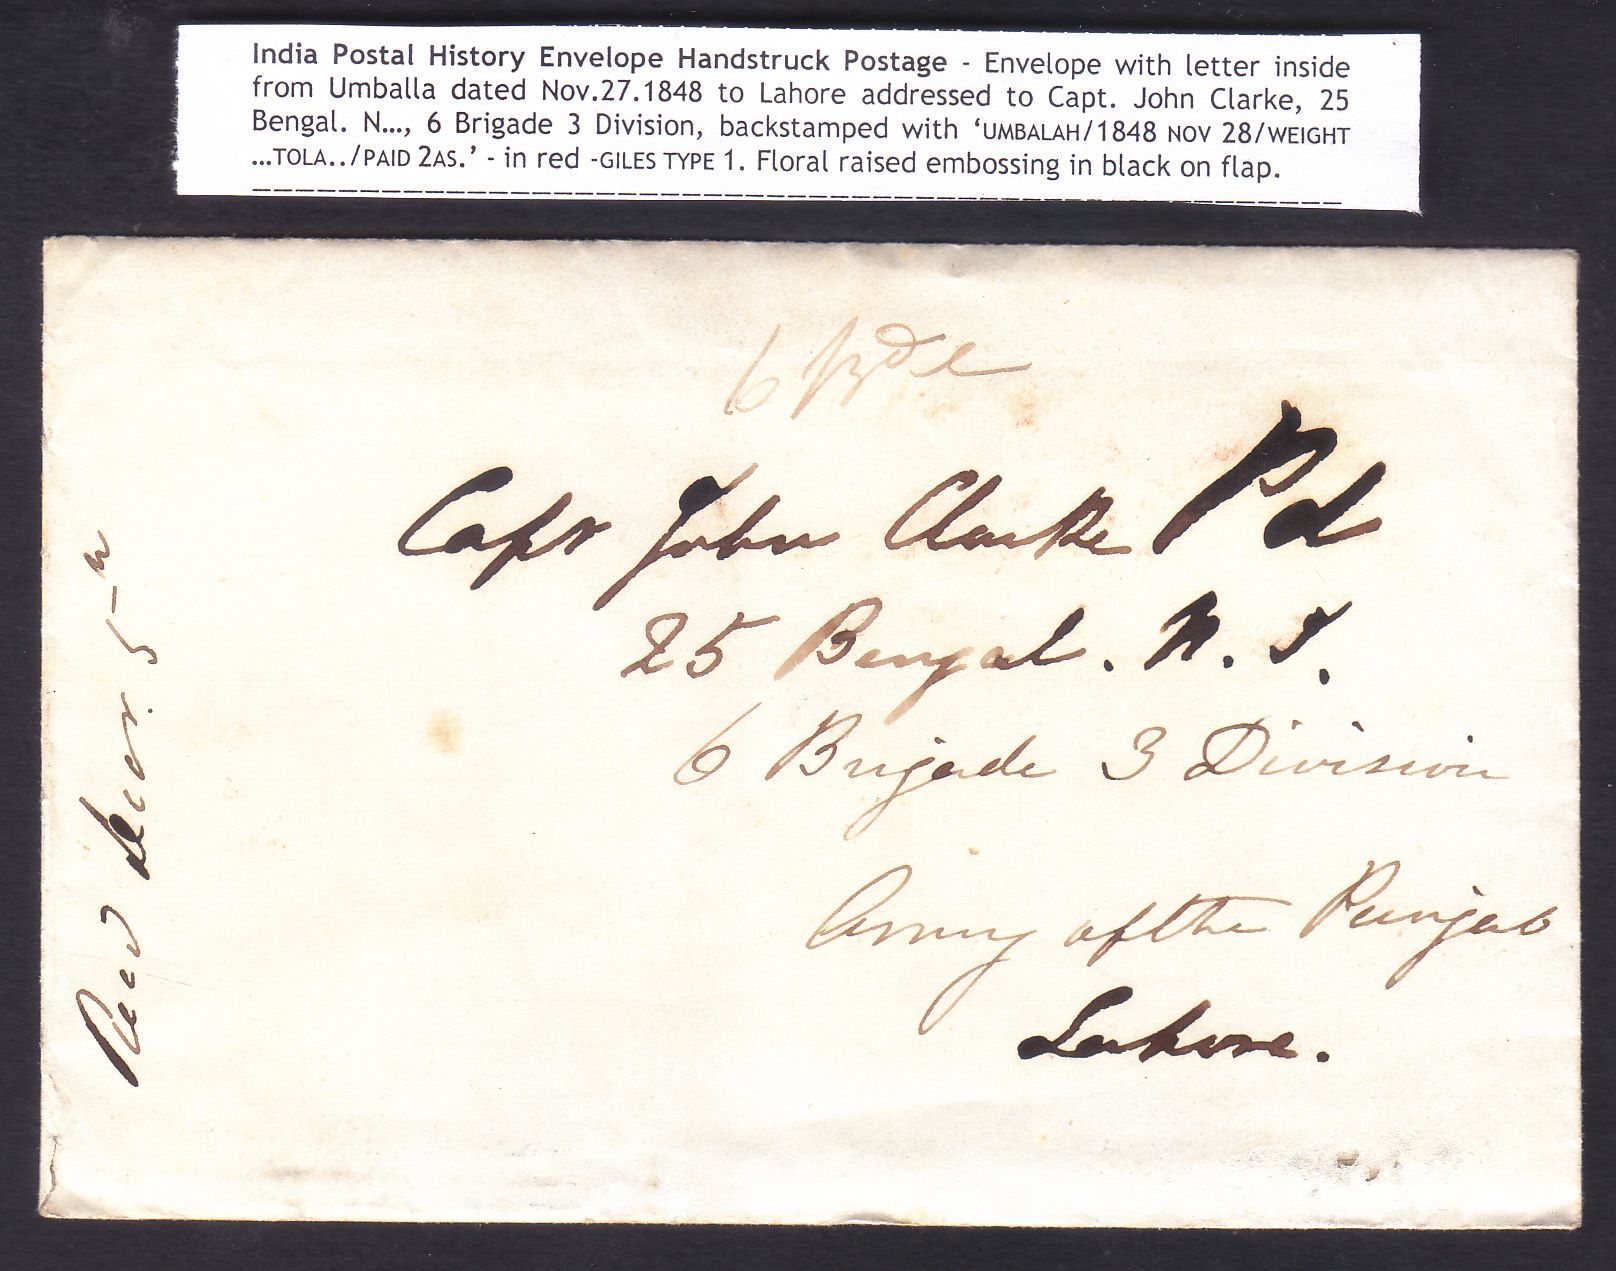 India Postal History Envelope Handstruck Postage - Envelope with letter inside
from Umballa dated Nov.27.1848 to Lahore addressed to Capt. John Clarke, 25
Bengal. N..., 6 Brigade 3 Division, backstamped with ‘UMBALAH/1848 NOV 28/WEIGHT
...TOLA../PAID 2AS.’ - in red -GILES TYPE 1. Floral raised embossing in black on flap.
6
Capt John Clarke Pd
25 Bengal. N. I.
6 Brigade 3 Division
Army of the Punjab
Lahore.
Recd Decer. 5